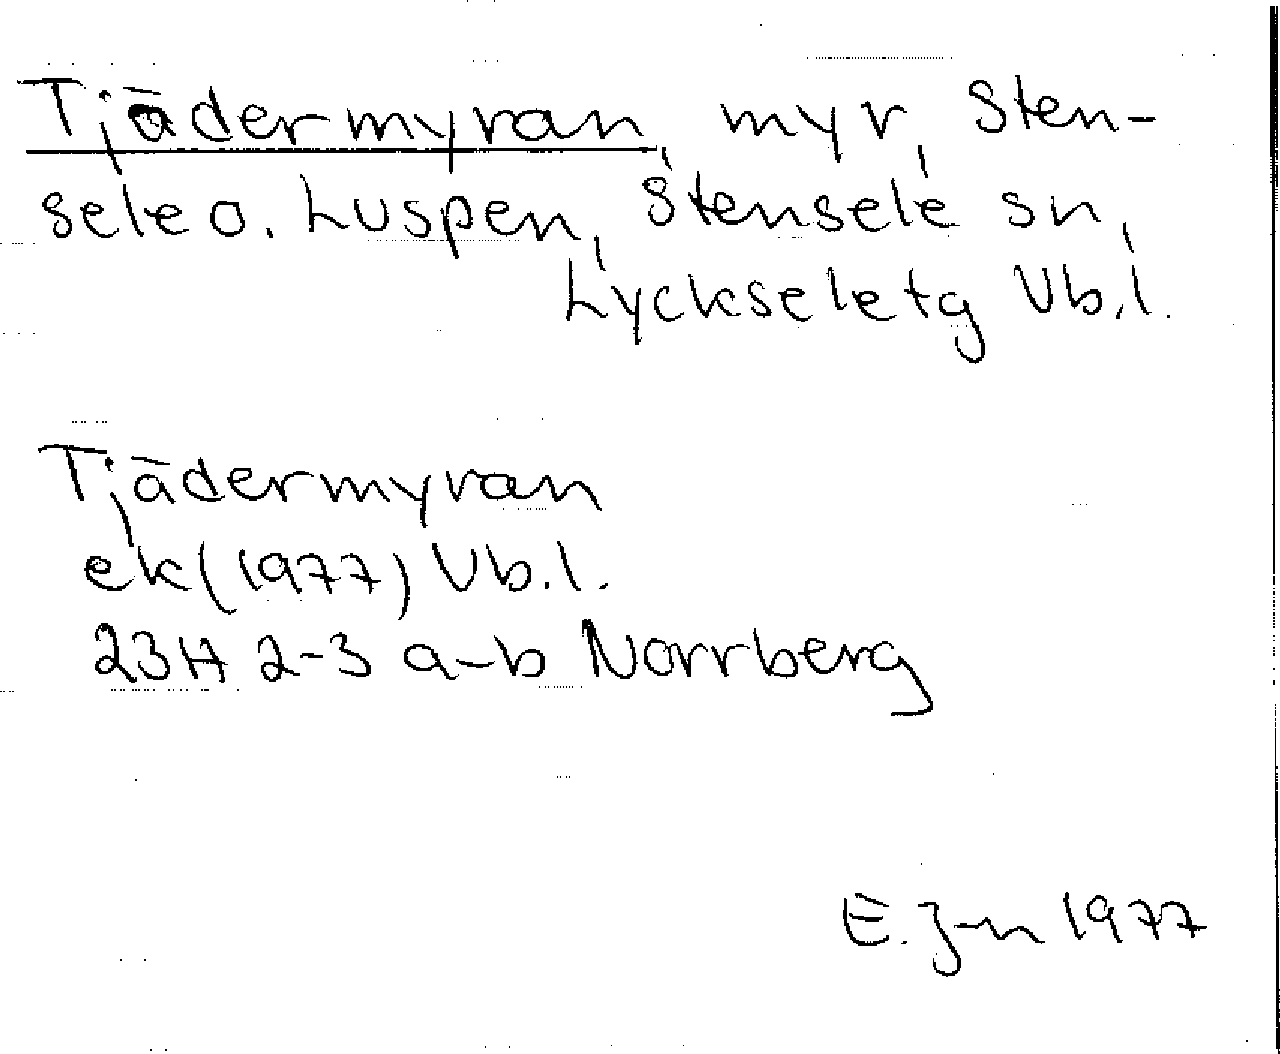 Tjädermyran, myr, Sten-
sele o. Luspen, Stensele sn,
Lyckseletg Vb.l.
Tjädermyran
ek (1977) Vb.l.
23H 2-3 a-b Norrberg
E. J-n 1977